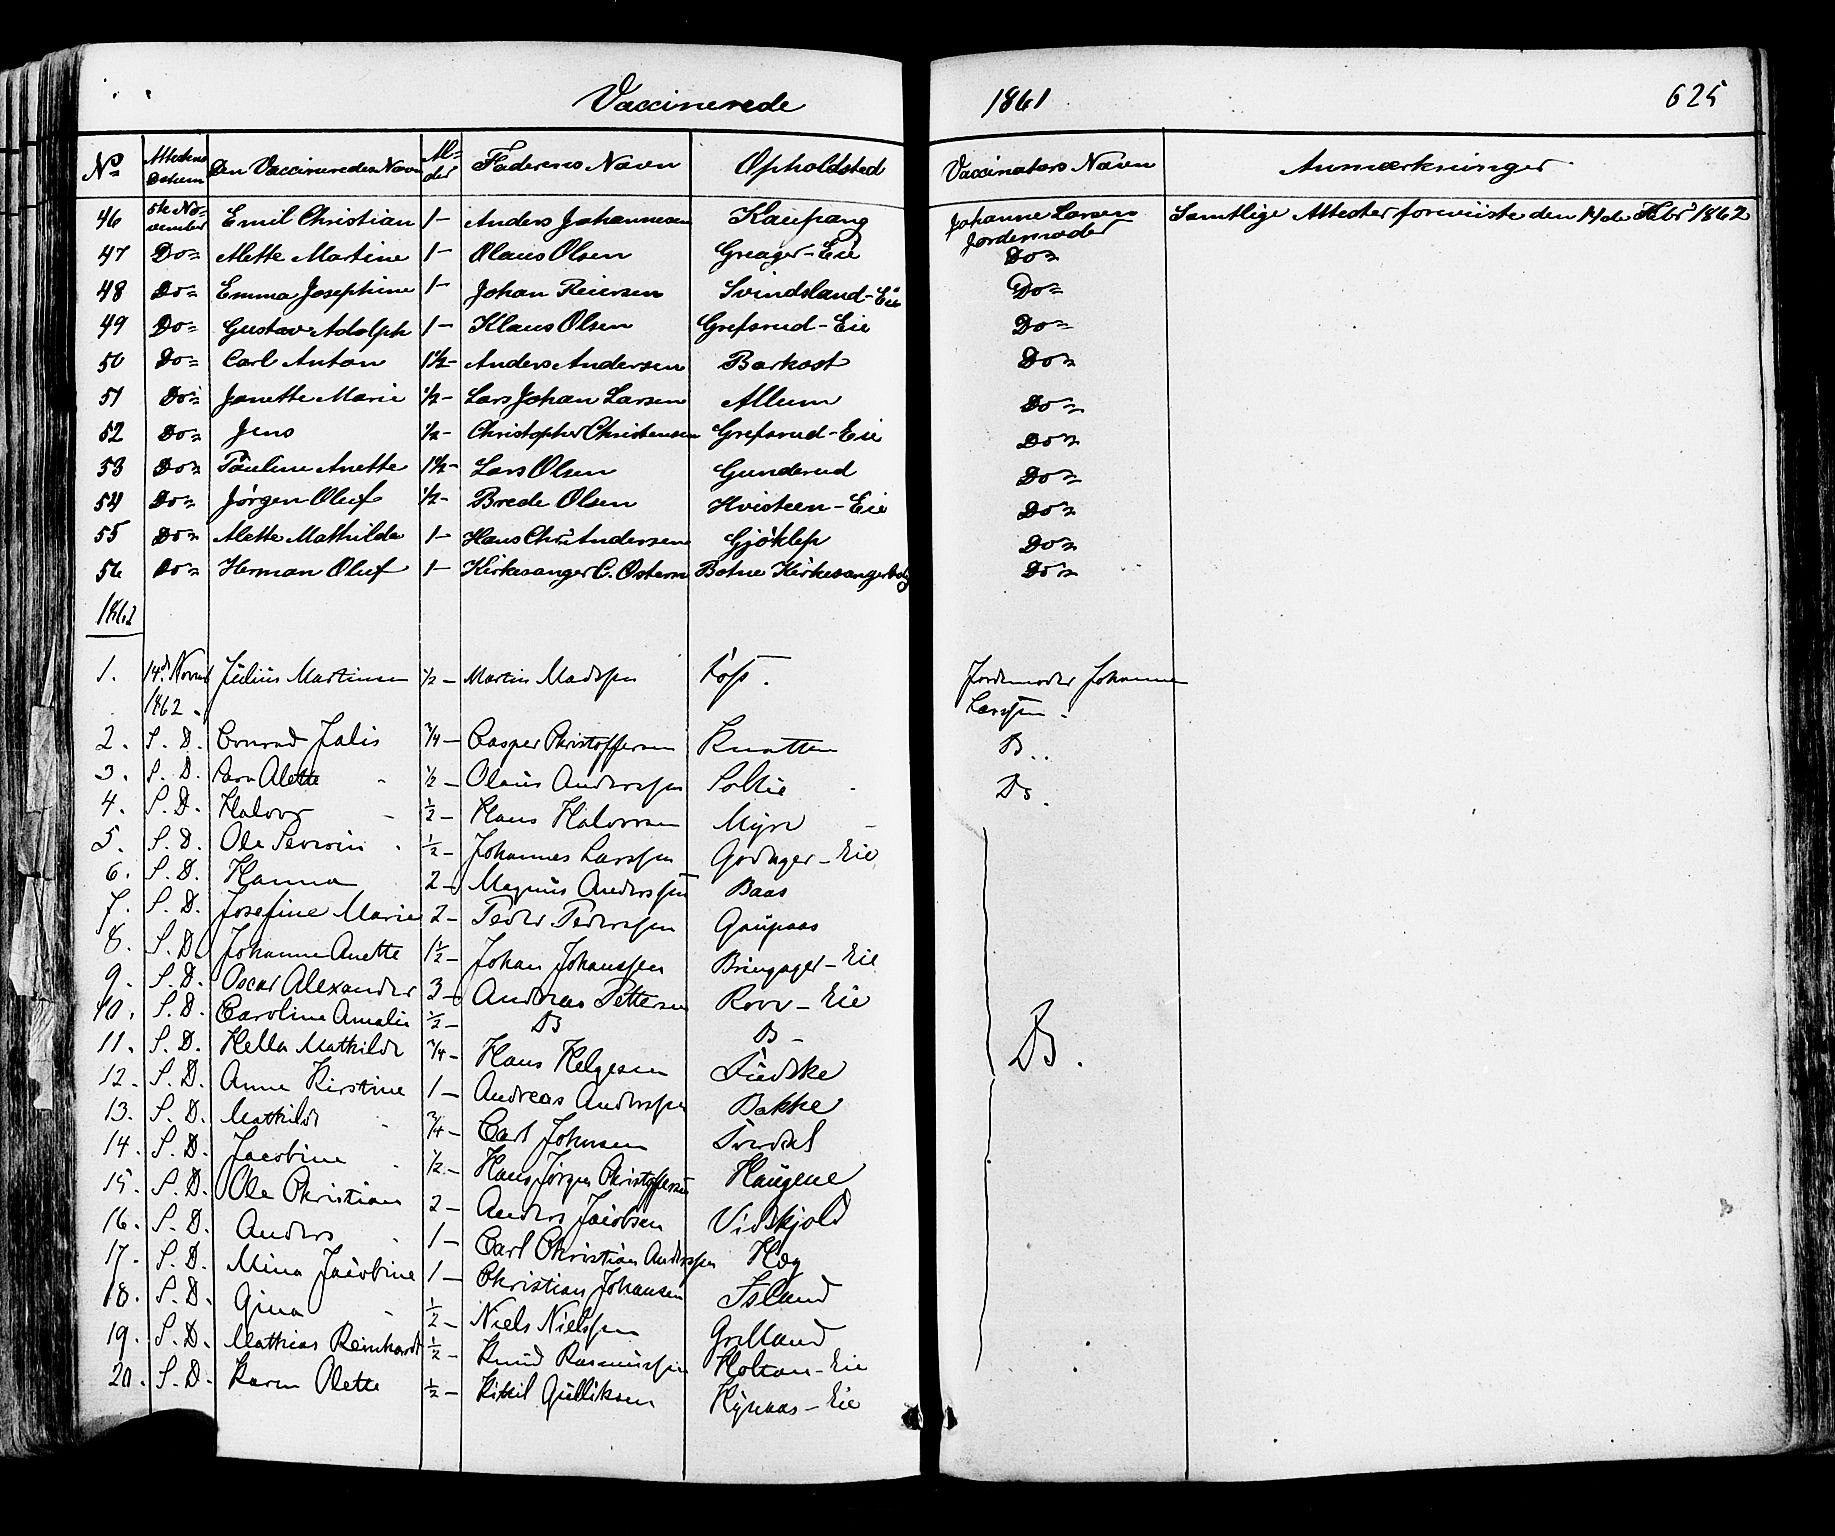 Vaccinerede 1861 625
No Attestens Datum Den Vaccineredes Navn Alder Faderens Navn Opholdsted Vaccinators Navn Anmærkninger
46 5te November Emil Christian 1- Anders Johannesen Kaupang Johanne Larsen Jordemoder Samtlige Attester foreviiste den 14de Febr 1862
47 Do= Alette Martine 1- Olaus Olsen Greager-Eie Do=
48 Do= Emma Josephine 1- Johan Reiersen Svindsland-Eie Do=
49 Do= Gustav Adolph 1- Klaus Olsen Grefsrud-Eie Do=
50 Do= Carl Anton 1½- Anders Andersen Barkost Do=
51 Do= Janette Marie ½- Lars Johan Larsen Allum Do=
52 Do= Jens ½- Christopher Christensen Grefsrud-Eie Do=
53 Do= Pauline Anette 1½- Lars Olsen Gunderud Do=
54 Do= Jørgen Oluf ½- Brede Olsen Hvisteen-Eie Do=
55 Do= Alette Mathilde 1- Hans Chr: Andersen Gjøklep Do=
56 Do= Herman Oluf 1- Kirkesanger C. Osterm Botne Kirkesangerbolig Do=
1862
1. 14d Novmb 1862. Julius Martinsen ½- Martin Madssen Jordemoder Johanne Larssen.
2. S. D. Conrad Julis ¾- Casper Christoffersen Knatten D..
3. S. D. Alette ½- Olaus Anderssen Sollie Do.
4. S. D. Halvor ½- Hans Halvorsen Myre
5. S. D. Ole Severin ½- Johannes Larssen Godager-Eie
6. S. D. Hanna 2- Magnus Anderssen Baas
7. S. D. Josefine Marie 2- Peder Pederssen Gaupaas
8. S. D. Johanne Anette 1½- Johan Johanssen Bringager-Eie
9. S. D. Oscar Alexander 3- Andreas Pettersen Rove-Eie
10. S. D. Caroline Amalie ½- Do Do- Do.
11. S. D. Hella Mathilde ¾- Hans Helgesen Fudske
12. S. D. Anne Kirstine 1- Andreas Anderssen Bakke
13. S. D. Mathilde ¾- Carl Johnsen Tverdal
14. S. D. Jacobine ½- Hans Jørgen Christoffersen Haugene
15. S. D. Ole Christian 2- Anders Jacobsen Vidskjold
16. S. D. Anders 1- Carl Christian Anderssen Hæg
17. S. D. Mina Jacobine 1- Christian Johansen Island
18. S. D. Gina ½- Niels Nielssen Grelland
19. S. D. Mathias Reinhardt ½- Knud Rasmussen Holtan-Eie
20. S. D. Karen Olette ½- Kittil Gulliksen Kynaas-Eie